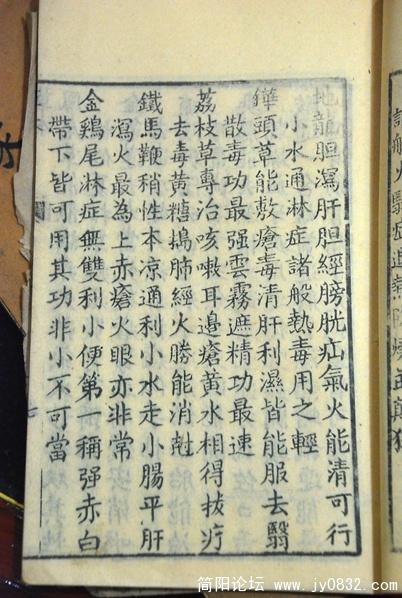 地龍胆瀉肝胆經膀胱疝氣火能清可行
小水通淋症諸般熱毒用之輕
鏵頭草能敷瘡毒清肝利濕皆能服去翳
散毒功最强雲霧遮精功最速
荔枝草專治咳嗽耳邊瘡黄水相得拔疔
去毒黄糖搗肺經火勝能消尅
鐵馬鞭稍性本凉通利小水走小腸平肝
瀉火最為上赤瘡火眼亦非常
金鷄尾淋症無雙利小便第一稱强赤白
帶下皆可用其功非小不可當
简阳论坛 www.jy0832.com